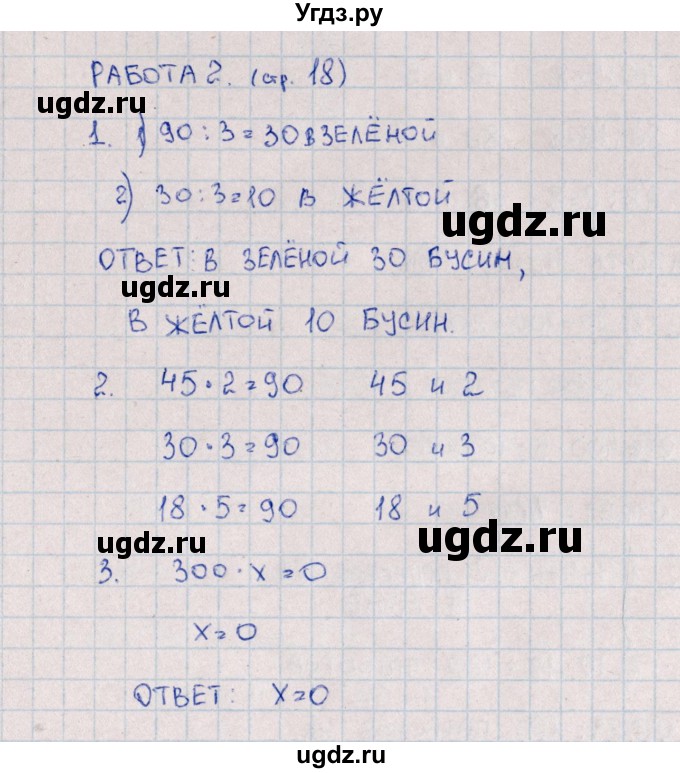 Угдз.ру
РАБОТА 2. (стр. 18)
ugdz.ru ugdz.ru
1. 1) 90 : 3 = 30 В ЗЕЛЁНОЙ
2) 30 : 3 = 10 В ЖЁЛТОЙ
ugdz.ru
ОТВЕТ: В ЗЕЛЁНОЙ 30 БУСИН,
ugdz.ru
В ЖЁЛТОЙ 10 БУСИН.
2. 45 · 2 = 90 45 и 2
30 · 3 = 90 30 и 3
18 · 5 = 90 18 и 5
ugdz.ru ugdz.ru
3. 300 · X = 0
X = 0
ОТВЕТ: X = 0
ugdz.ru